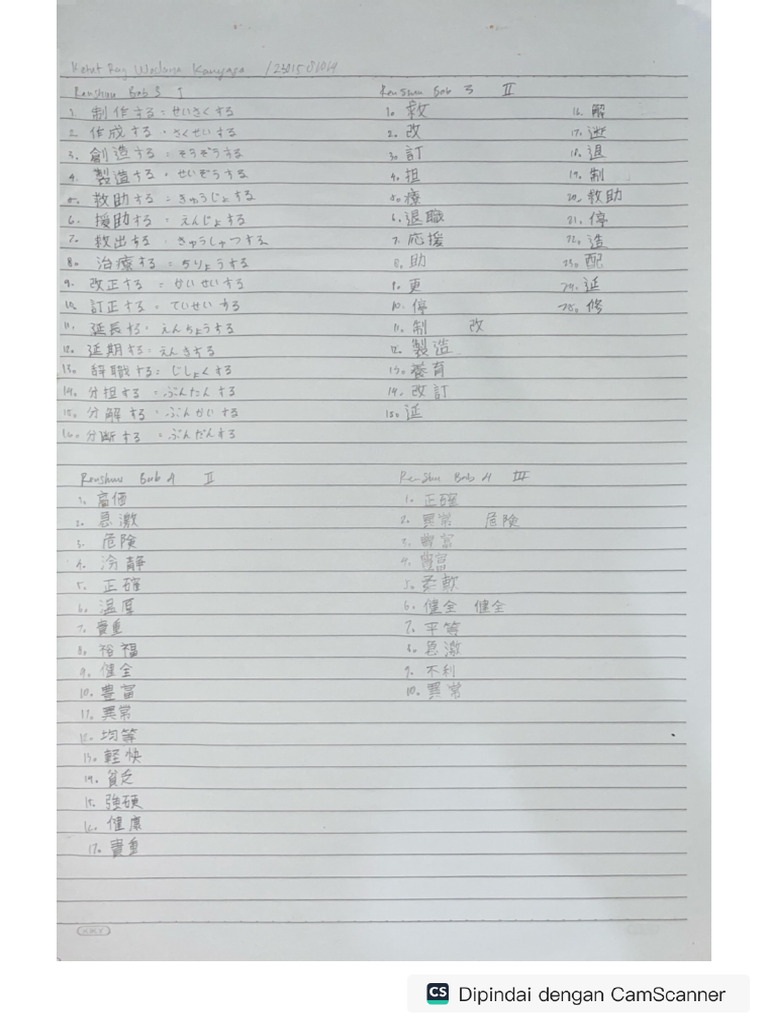 Renshuu Bab 3 I
1. 制作する = せいさくする
2. 作成する = さくせいする
3. 創造する = そうぞうする
4. 製造する = せいぞうする
5. 救助する = きゅうじょする
6. 援助する = えんじょする
7. 救出する = きゅうしゅつする
8. 治療する = ちりょうする
9. 改正する = かいせいする
10. 訂正する = ていせいする
11. 延長する = えんちょうする
12. 延期する = えんきする
13. 辞職する = じしょくする
14. 分担する = ぶんたんする
15. 分解する = ぶんかいする
16. 分断する = ぶんだんする
Renshuu Bab 3 II
1. 救
2. 改
3. 訂
4. 担
5. 療
6. 退職
7. 応援
8. 助
9. 更
10. 停
11. 制 改
12. 製造
13. 養育
14. 改訂
15. 延
16. 解
17. 逃
18. 退
19. 制
20. 救助
21. 停
22. 造
23. 配
24. 延
25. 修
Renshuu Bab 4 II
1. 高価
2. 急激
3. 危険
4. 冷静
5. 正確
6. 温厚
7. 貴重
8. 裕福
9. 健全
10. 豊富
11. 異常
12. 均等
13. 軽快
14. 貧乏
15. 強硬
16. 健康
17. 貴重
Renshuu Bab 4 III
1. 正確
2. 異常 危険
3. 豊富
4. 豊富
5. 柔軟
6. 健全 健全
7. 平等
8. 急激
9. 不利
10. 異常
CS Dipindai dengan CamScanner